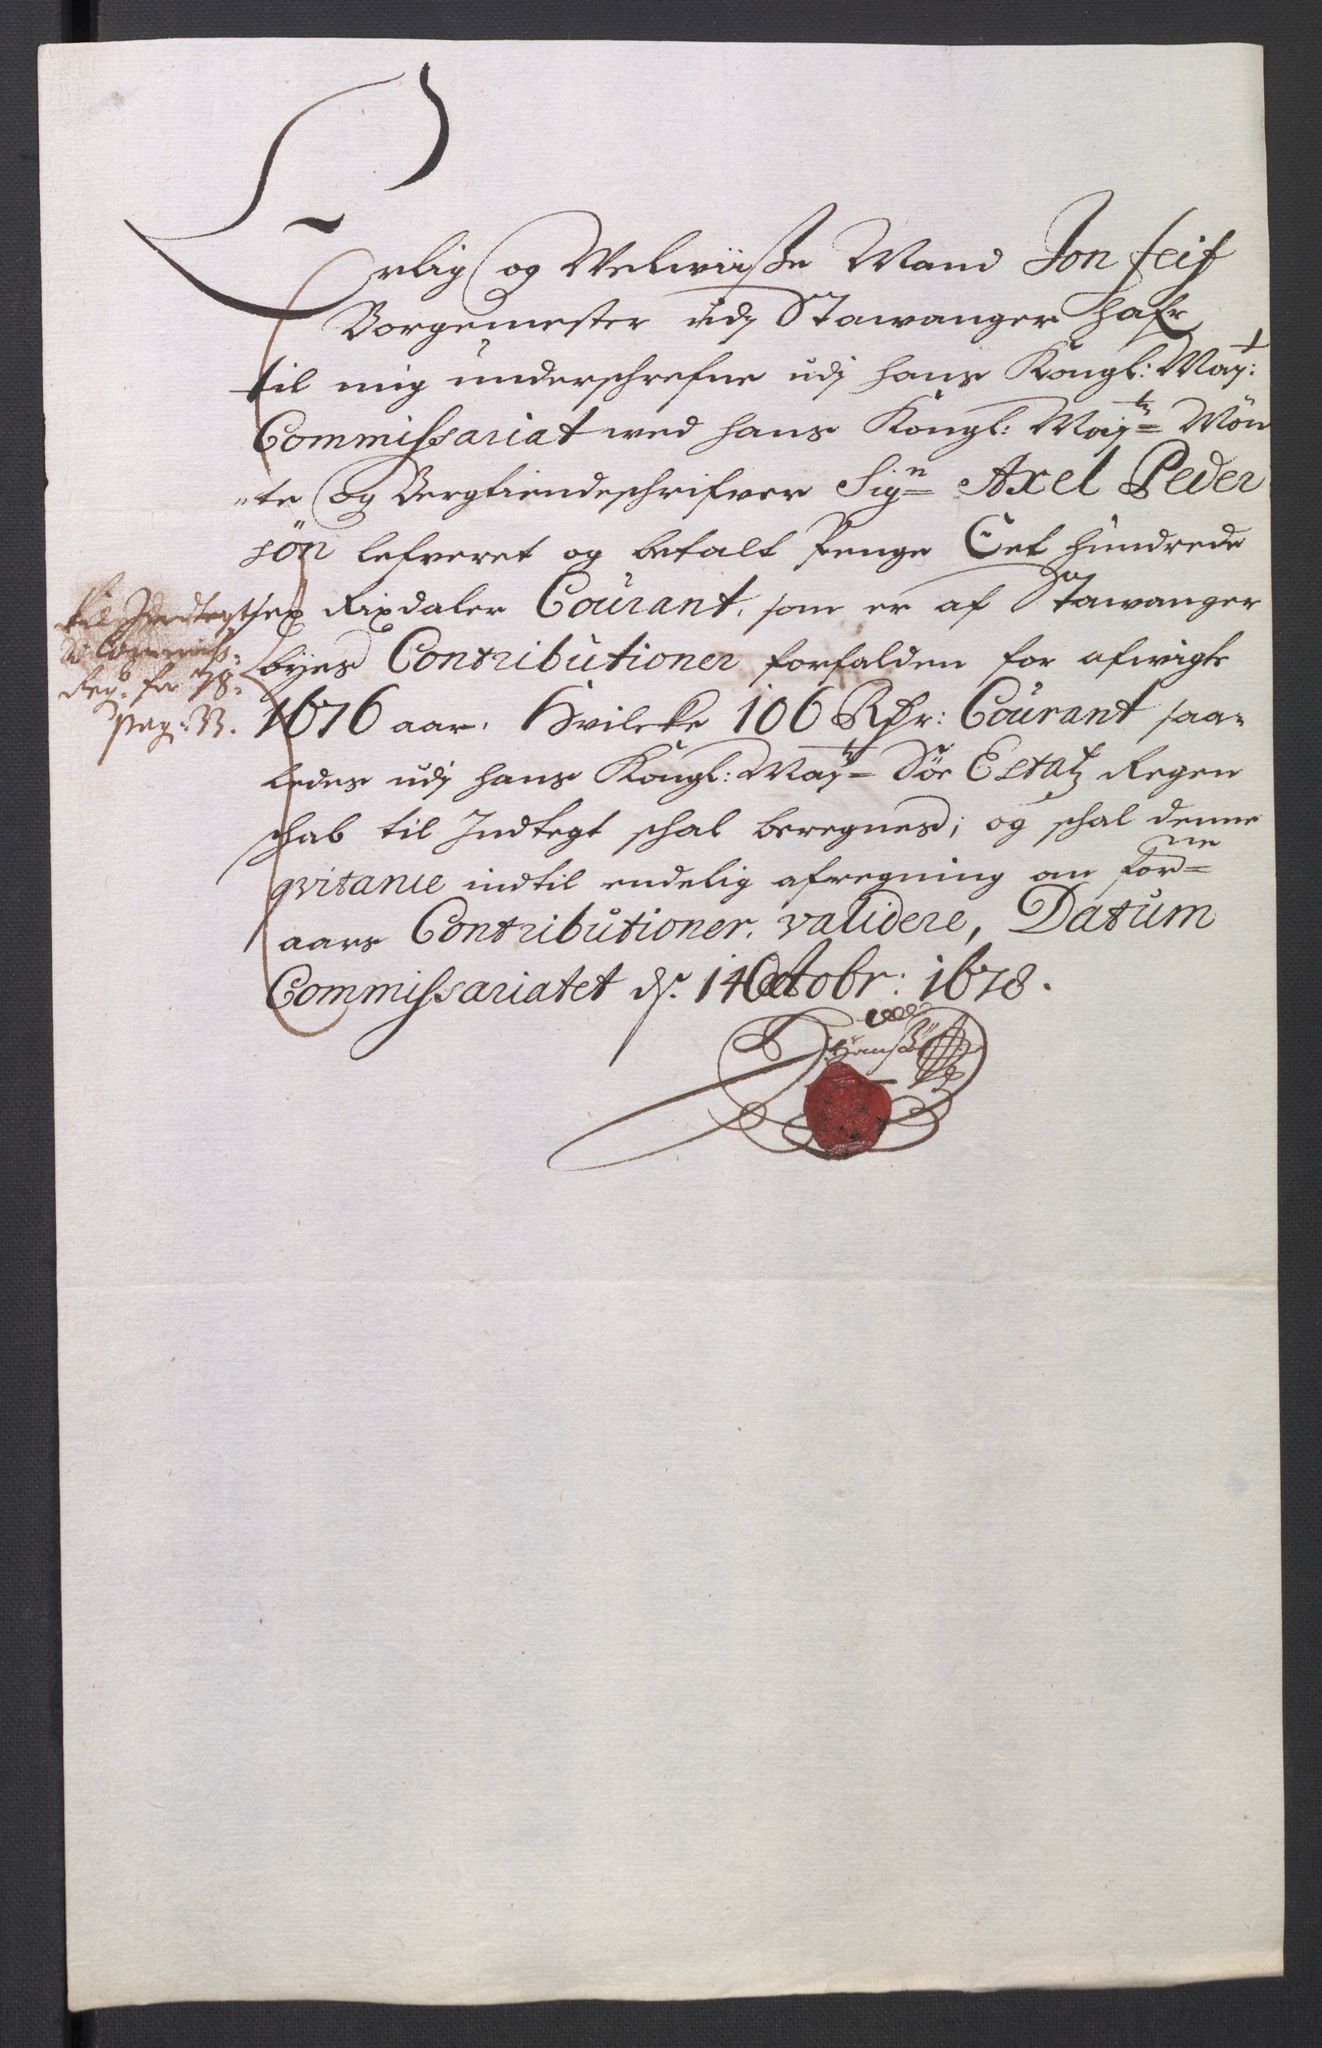 Erlig og Velwiiße Mand Jon Feif
Borgemester udj Stawanger hafr
til mig underschrefne udj hans Kongl: May:t
Commissariat wed hans Kongl: May:tz Mön
"te og Bergtiendeschrifver Sig:n Axel Peder
søn lefveret og betalt Penge Eet hundrede
sex Rixdaler Courant, som er af Stawanger
byes Contributioner forfalden for afvigte
1676 aar. Hvilcke 106 Rdr: Courant saa-
ledes udj hans Kongl: May:tz Söe Estatz Regen
schab til Indtegt schal beregnes; og schal denne
qvitanie indtil endelig afregning om for:ne
aars Contributioner, validere, Datum
Commissariatet d. 14 Octobr: 1678.
Hans
til Indtegt
Commiss:
Reg: for 78:
pag: 33.